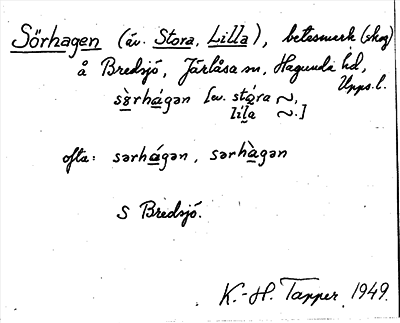 Sörhagen (äv. Stora, Lilla), betesmark (skog)
å Bredsjö, Järlåsa sn, Hagunda hd,
Upps. l.
sö̀rhágən [ev. stóra ~,
líla ~.]
ofta: sərhágən, sərhàgən
S Bredsjö.
K.-H. Tapper 1949.